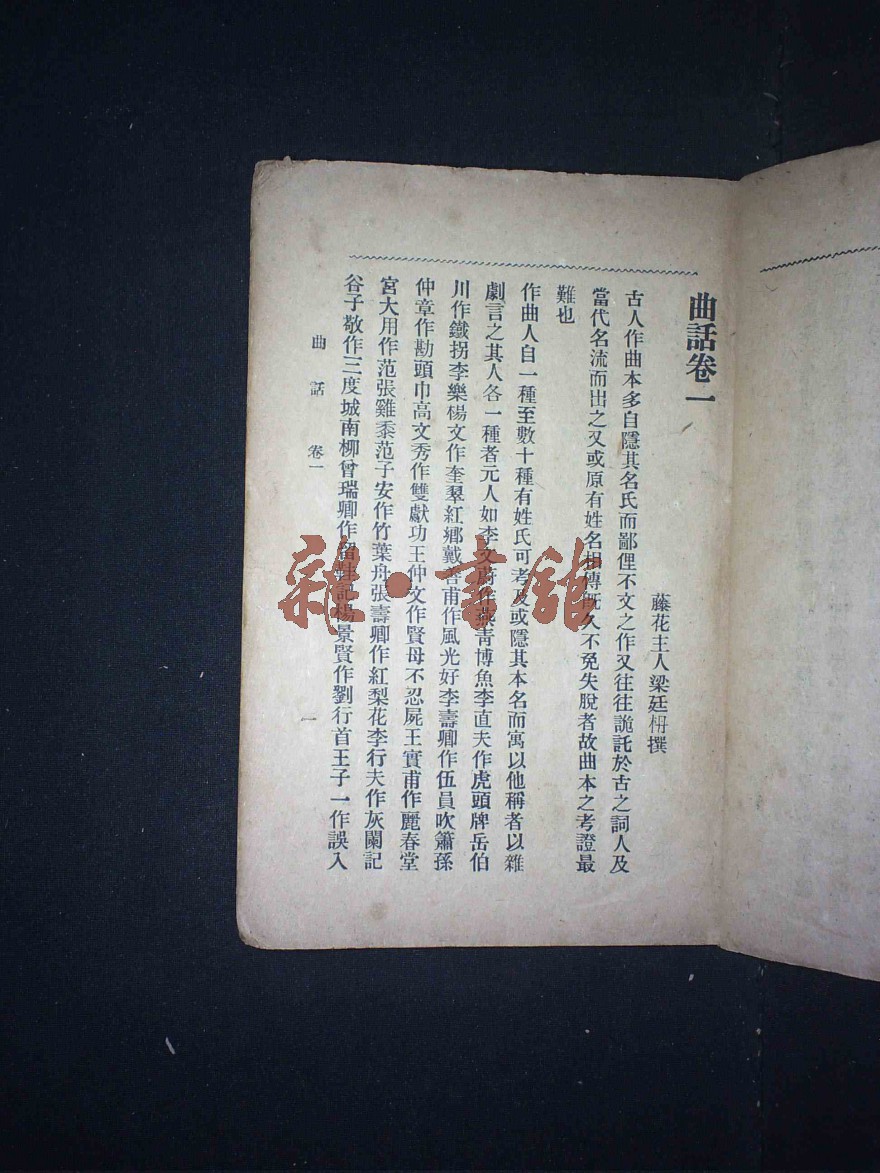 曲話卷一
藤花主人梁廷枏撰
古人作曲本多自隱其名氏而鄙俚不文之作又往往詭託於古之詞人及
當代名流而出之又或原有姓名相傳既久不免失脫者故曲本之考證最
難也
作曲人自一種至數十種有姓氏可考及或隱其本名而寓以他稱者以雜
劇言之其人各一種者元人如李文蔚作燕青博魚李直夫作虎頭牌岳伯
川作鐵拐李樂楊文作奎翠紅鄉戴善甫作風光好李壽卿作伍員吹簫孫
仲章作勘頭巾高文秀作雙獻功王仲文作賢母不忍屍王實甫作麗春堂
宮大用作范張雞黍范子安作竹葉舟張壽卿作紅梨花李行夫作灰闌記
谷子敬作三度城南柳曾瑞卿作留鞋記楊景賢作劉行首王子一作誤入
曲話 卷一 一
雜·書館